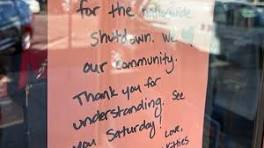 for the nationwide
shutdown. We ♡
our community.
Thank you for
understanding. See
you Saturday!
Love,